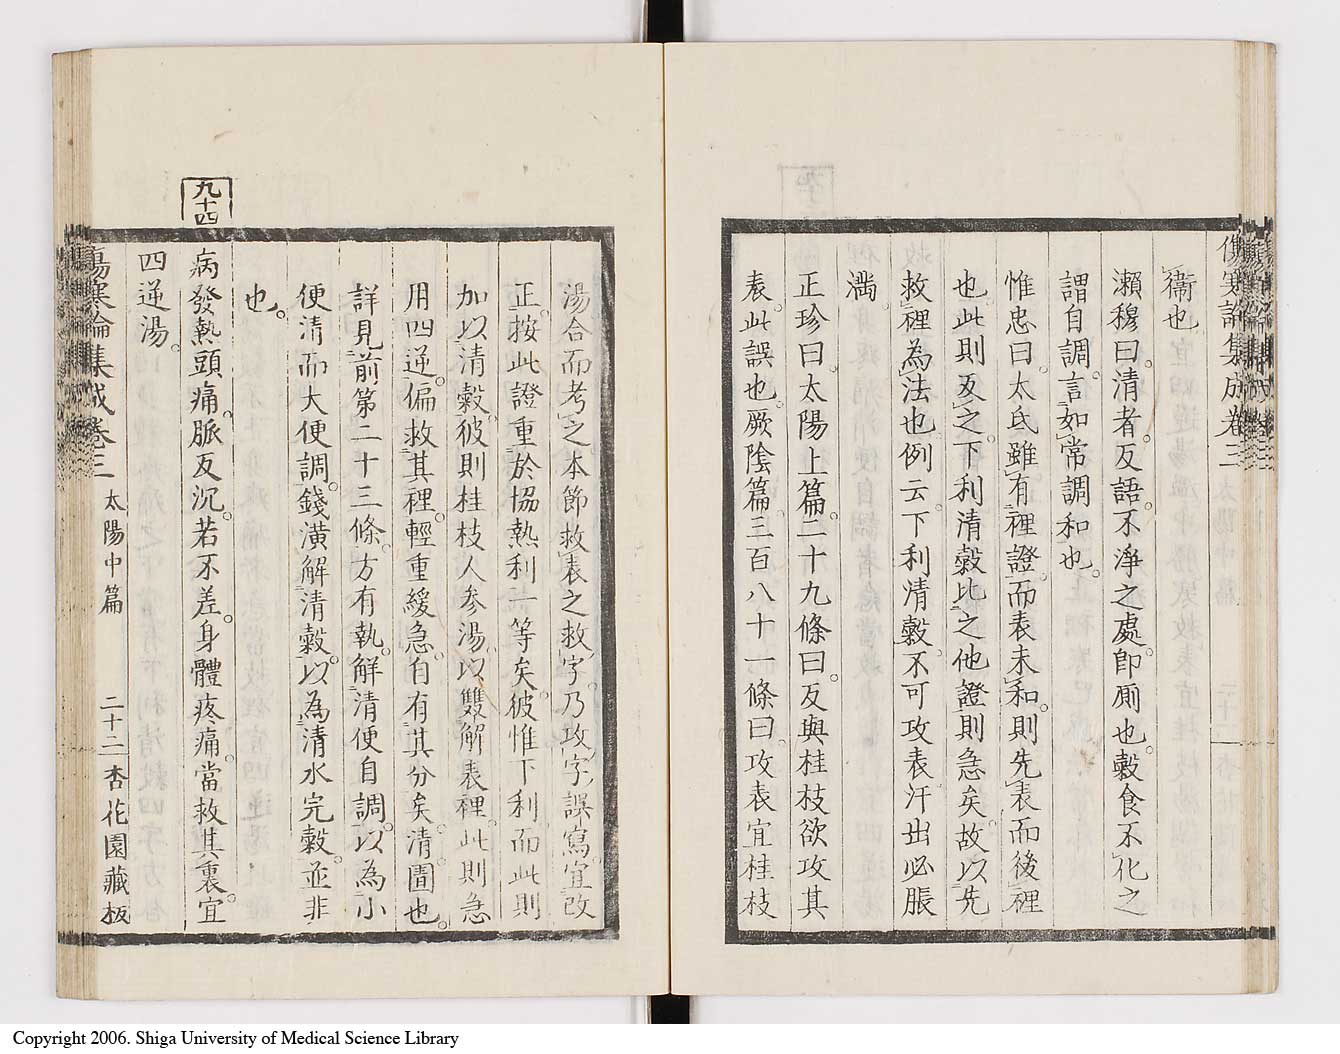 傷寒論集成卷三
衞也
瀨穆曰清者反語不淨之處卽厠也穀食不化之
謂自調言如常調和也
惟忠曰太氐雖有裡證而表未和則先表而後裡
也此則反之下利清穀比之他證則急矣故以先
救裡為法也例云下利清穀不可攻表汗出必脹
滿
正珍曰太陽上篇二十九條曰反與桂枝欲攻其
表此誤也厥陰篇三百八十一條曰攻表宜桂枝
湯合而考之本節救表之救字乃攻字誤寫宜改
正按此證重於協熱利一等矣彼惟下利而此則
加以清穀彼則桂枝人参湯以雙解表裡此則急
用四逆偏救其裡輕重緩急自有其分矣清圊也
詳見前第二十三條方有執解清便自調以為小
便清而大便調錢潢解清穀以為清水完穀並非
也
九十四
病發熱頭痛脈反沉若不差身體疼痛當救其裏宜
四逆湯
傷寒論集成卷三 太陽中篇 二十二 杏花園藏板
Copyright 2006. Shiga University of Medical Science Library